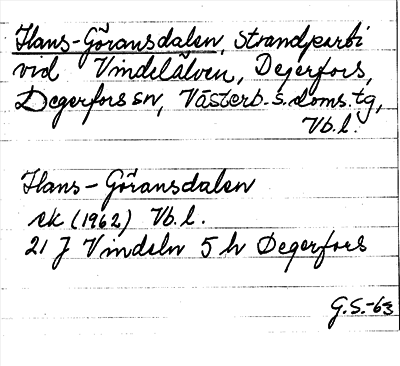 Hans-Göransdalen, strandparti
vid Vindelälven, Degerfors,
Degerfors sn, Västerb. s. doms. tg,
Vb. l.
Hans-Göransdalen
ek (1962) Vb. l.
21 J Vindeln 5 h Degerfors
G.S.-63